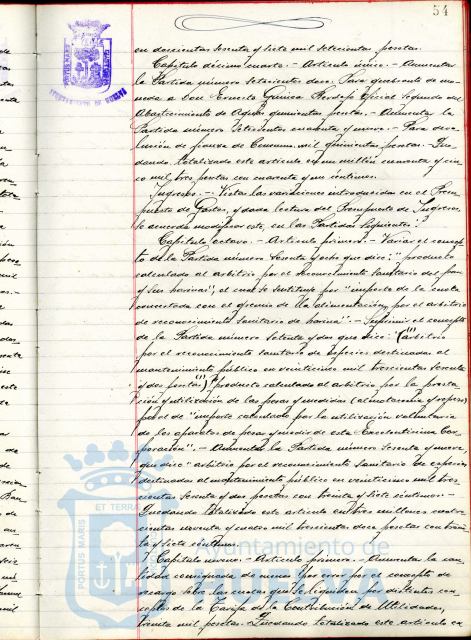 54
en doscientas sesenta y siete mil setecientas pesetas.
Capítulo décimo cuarto.- Artículo único.- Aumentar
la Partida número setecientos doce. Para quebranto de mo-
neda a Don Ernesto Oficial Segundo del
Abastecimiento de Aguas quinientas pesetas.- Aumentar la
Partida número setecientos cuarenta y nueve.- Para devo-
lución de fianza de Consumos mil quinientas pesetas.- Que-
dando totalizado este artículo en un millón cuarenta y cin-
co mil tres pesetas con cuarenta y un céntimos.
Ingresos.-: Vistas las variaciones introducidas en el Presu-
puesto de Gastos, y dada lectura del Presupuesto de Ingresos,
se acuerda modificar este, en las Partidas siguientes:
Capítulo octavo.- Artículo primero.- Variar el concep-
to de la Partida número sesenta y ocho que dice: "producto
calculado al arbitrio por el reconocimiento sanitario del pan
y sus harinas", el cual se sustituye por "importe de la cuota
concertada con el gremio de la alimentación, por el arbitrio
de reconocimiento sanitario de harina".- Suprimir el concepto
de la Partida número setenta y dos que dice: (")arbitrio
por el reconocimiento sanitario de especies destinadas al
mantenimiento público en veinticinco mil trescientas sesenta
y dos pesetas(") "producto calculado al arbitrio por la presta-
ción y utilización de las pesas y medidas (almotacenía y repeso)
por el de "importe calculado por la utilización voluntaria
de los aparatos de pesar y medir de esta Excelentísima Cor-
poración".- Aumentar la Partida número sesenta y nueve,
que dice "arbitrio por el reconocimiento sanitario de especies
destinadas al mantenimiento público en veinticinco mil tres-
cientas sesenta y dos pesetas con treinta y siete céntimos.-
Quedando totalizado este artículo en tres millones cuatro-
cientas noventa y cuatro mil trescientas doce pesetas con trein-
ta y siete céntimos.
Capítulo noveno.- Artículo primero.- Aumentar la can-
tidad consignada de menos por error por el concepto de
recargo sobre las cuotas que se liquiden por distintos con-
ceptos de la Tarifa de la Contribución de Utilidades,
treinta mil pesetas.- Quedando totalizado este artículo en
PORTUS MARIS
ET TERRAE
Ayuntamiento de